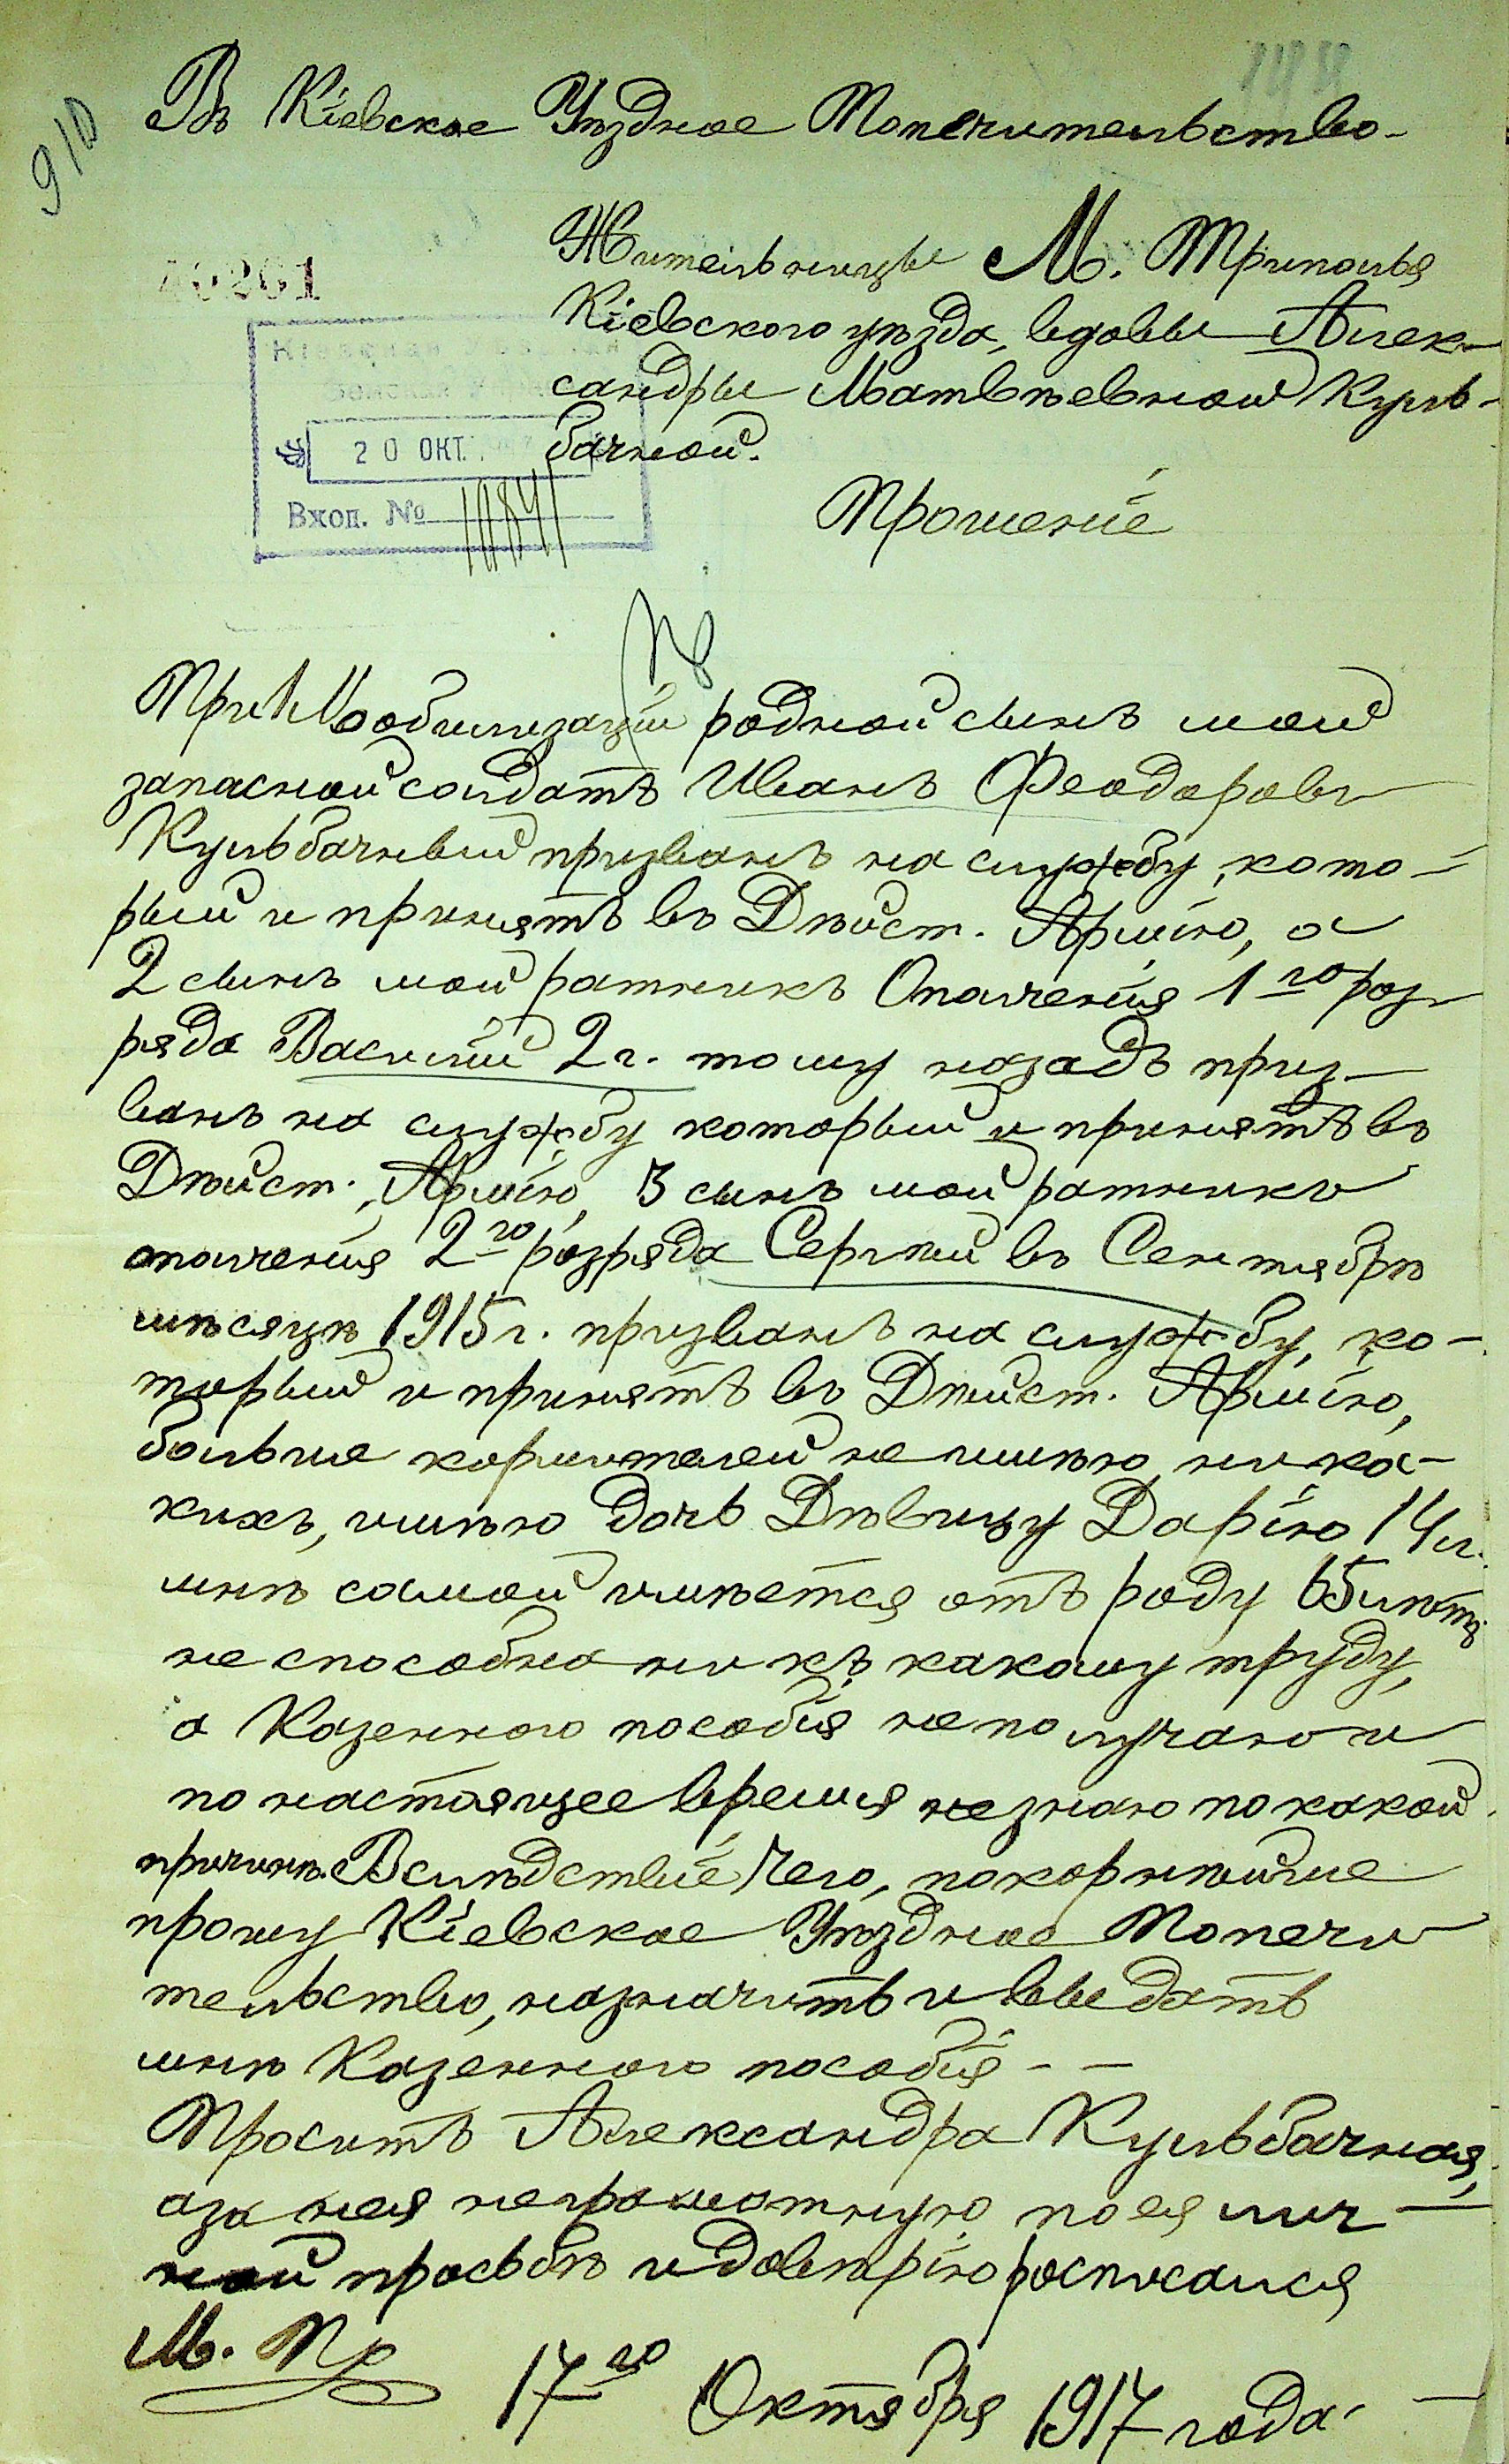 910
Въ Кіевское Уѣздное Попечительство
Жительницы М. Триполья
Кіевского уѣзда, вдовы Алек-
сандры Матвѣевной Куль-
бачной.
20261
20 ОКТ.
Вход. №
Прошеніе
При Мобилизаціи родной сынъ мой
запасной солдатъ Иванъ Феодоровъ
Кульбачный призванъ на службу, кото-
рый и принятъ въ Дѣйст. Армію, а
2 сынъ мой ратникъ Ополченія 1го раз
ряда Василій 2 г. тому назадъ приз-
ванъ на службу который и принятъ въ
Дѣйст. Армію, 3 сынъ мой ратникъ
ополченія 2го розряда Сергѣй въ Сентябрѣ
мѣсяцѣ 1915 г. призванъ на службу, ко-
торый и принятъ въ Дѣйст. Армію,
больше кормителей не имѣю ника-
кихъ, имѣю дочь Дѣвицу Дарію 14 л.
мнѣ самой имѣется отъ роду 65 лѣтъ
не способна ни къ какому труду,
а Казенного пособія не получаю и
по настоящее время не знаю по какой
причинѣ. Вслѣдствіе чего, покорнѣйше
прошу Кіевское Уѣздное Попечи
тельство, назначить и выдать
мнѣ Казенного пособія - -
Проситъ Александра Кульбачная,
а за нея неграмотную по ея лич
ной просьбѣ и довѣрію росписался
М. Пр
17го Октября 1917 года